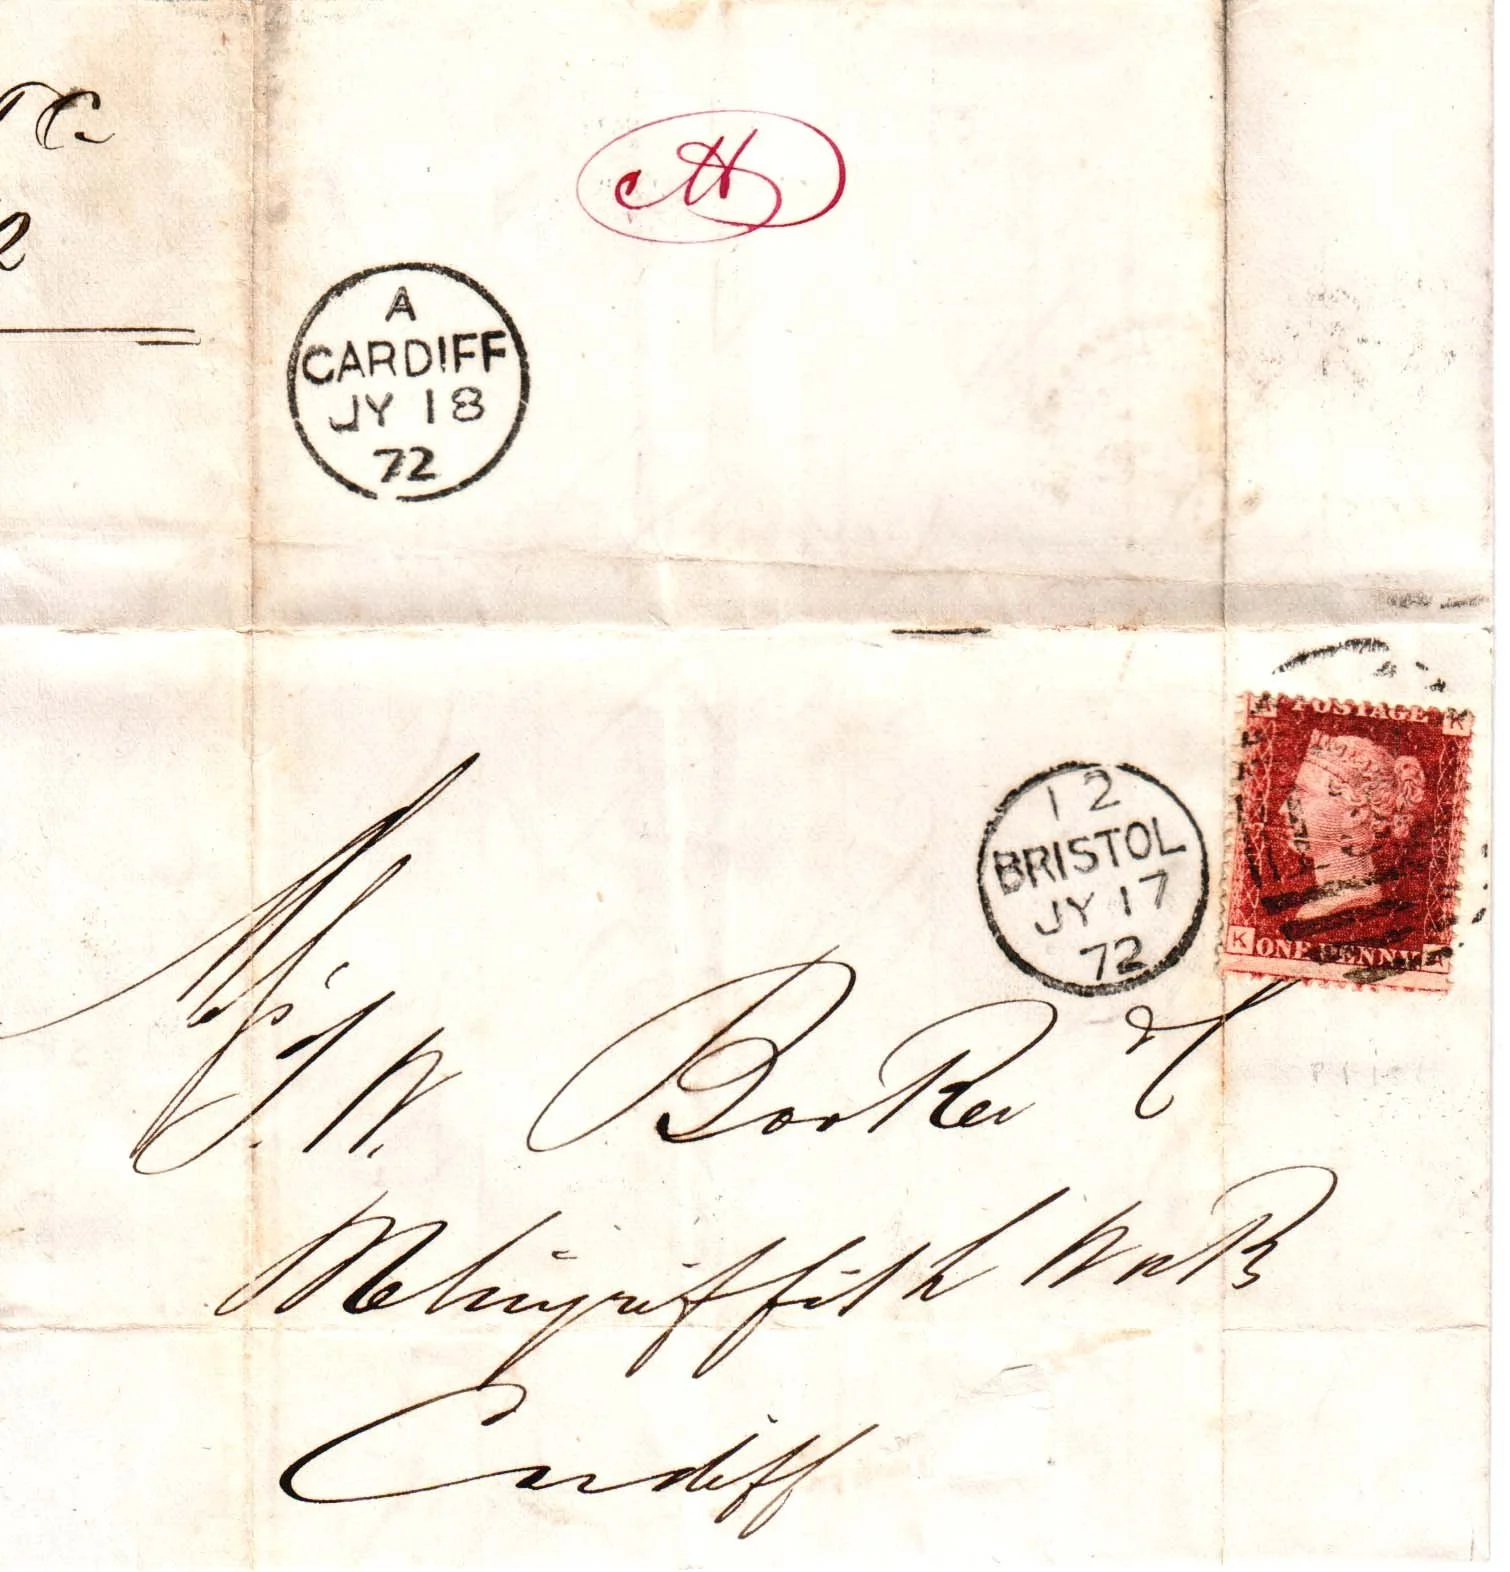 A
CARDIFF
JY 18
72
12
BRISTOL
JY 17
72
POSTAGE
K
K ONE PENNY A
Mess
T. W. Booker & C
Melingriffith Works
Cardiff